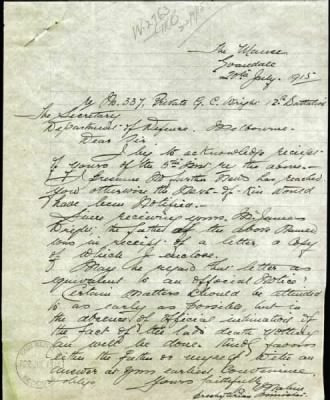 The Manse
Evandale
20th July. 1915
No 337, Private G. C. Wright 12th Battalion
The Secretary
Department of Defence. Melbourne.
Dear Sir.
I beg to acknowledge receipt
of yours of the 5th re the above.
I presume no further news has reached
you otherwise the Next-of-Kin would
have been notified.
Since receiving yours, Mr James
Wright, the father of the above named
was in receipt of a letter a copy
of which I enclose.
May he regard his letter as
equivalent to an official notice.
Certain matters should be attended
to as early as possible but in
the absence of official intimation of
the fact of the lad's death nothing
can well be done. Kindly favour
either the father or myself with an
answer at your earliest convenience
&
Yours faithfully
Presbyterian Minister